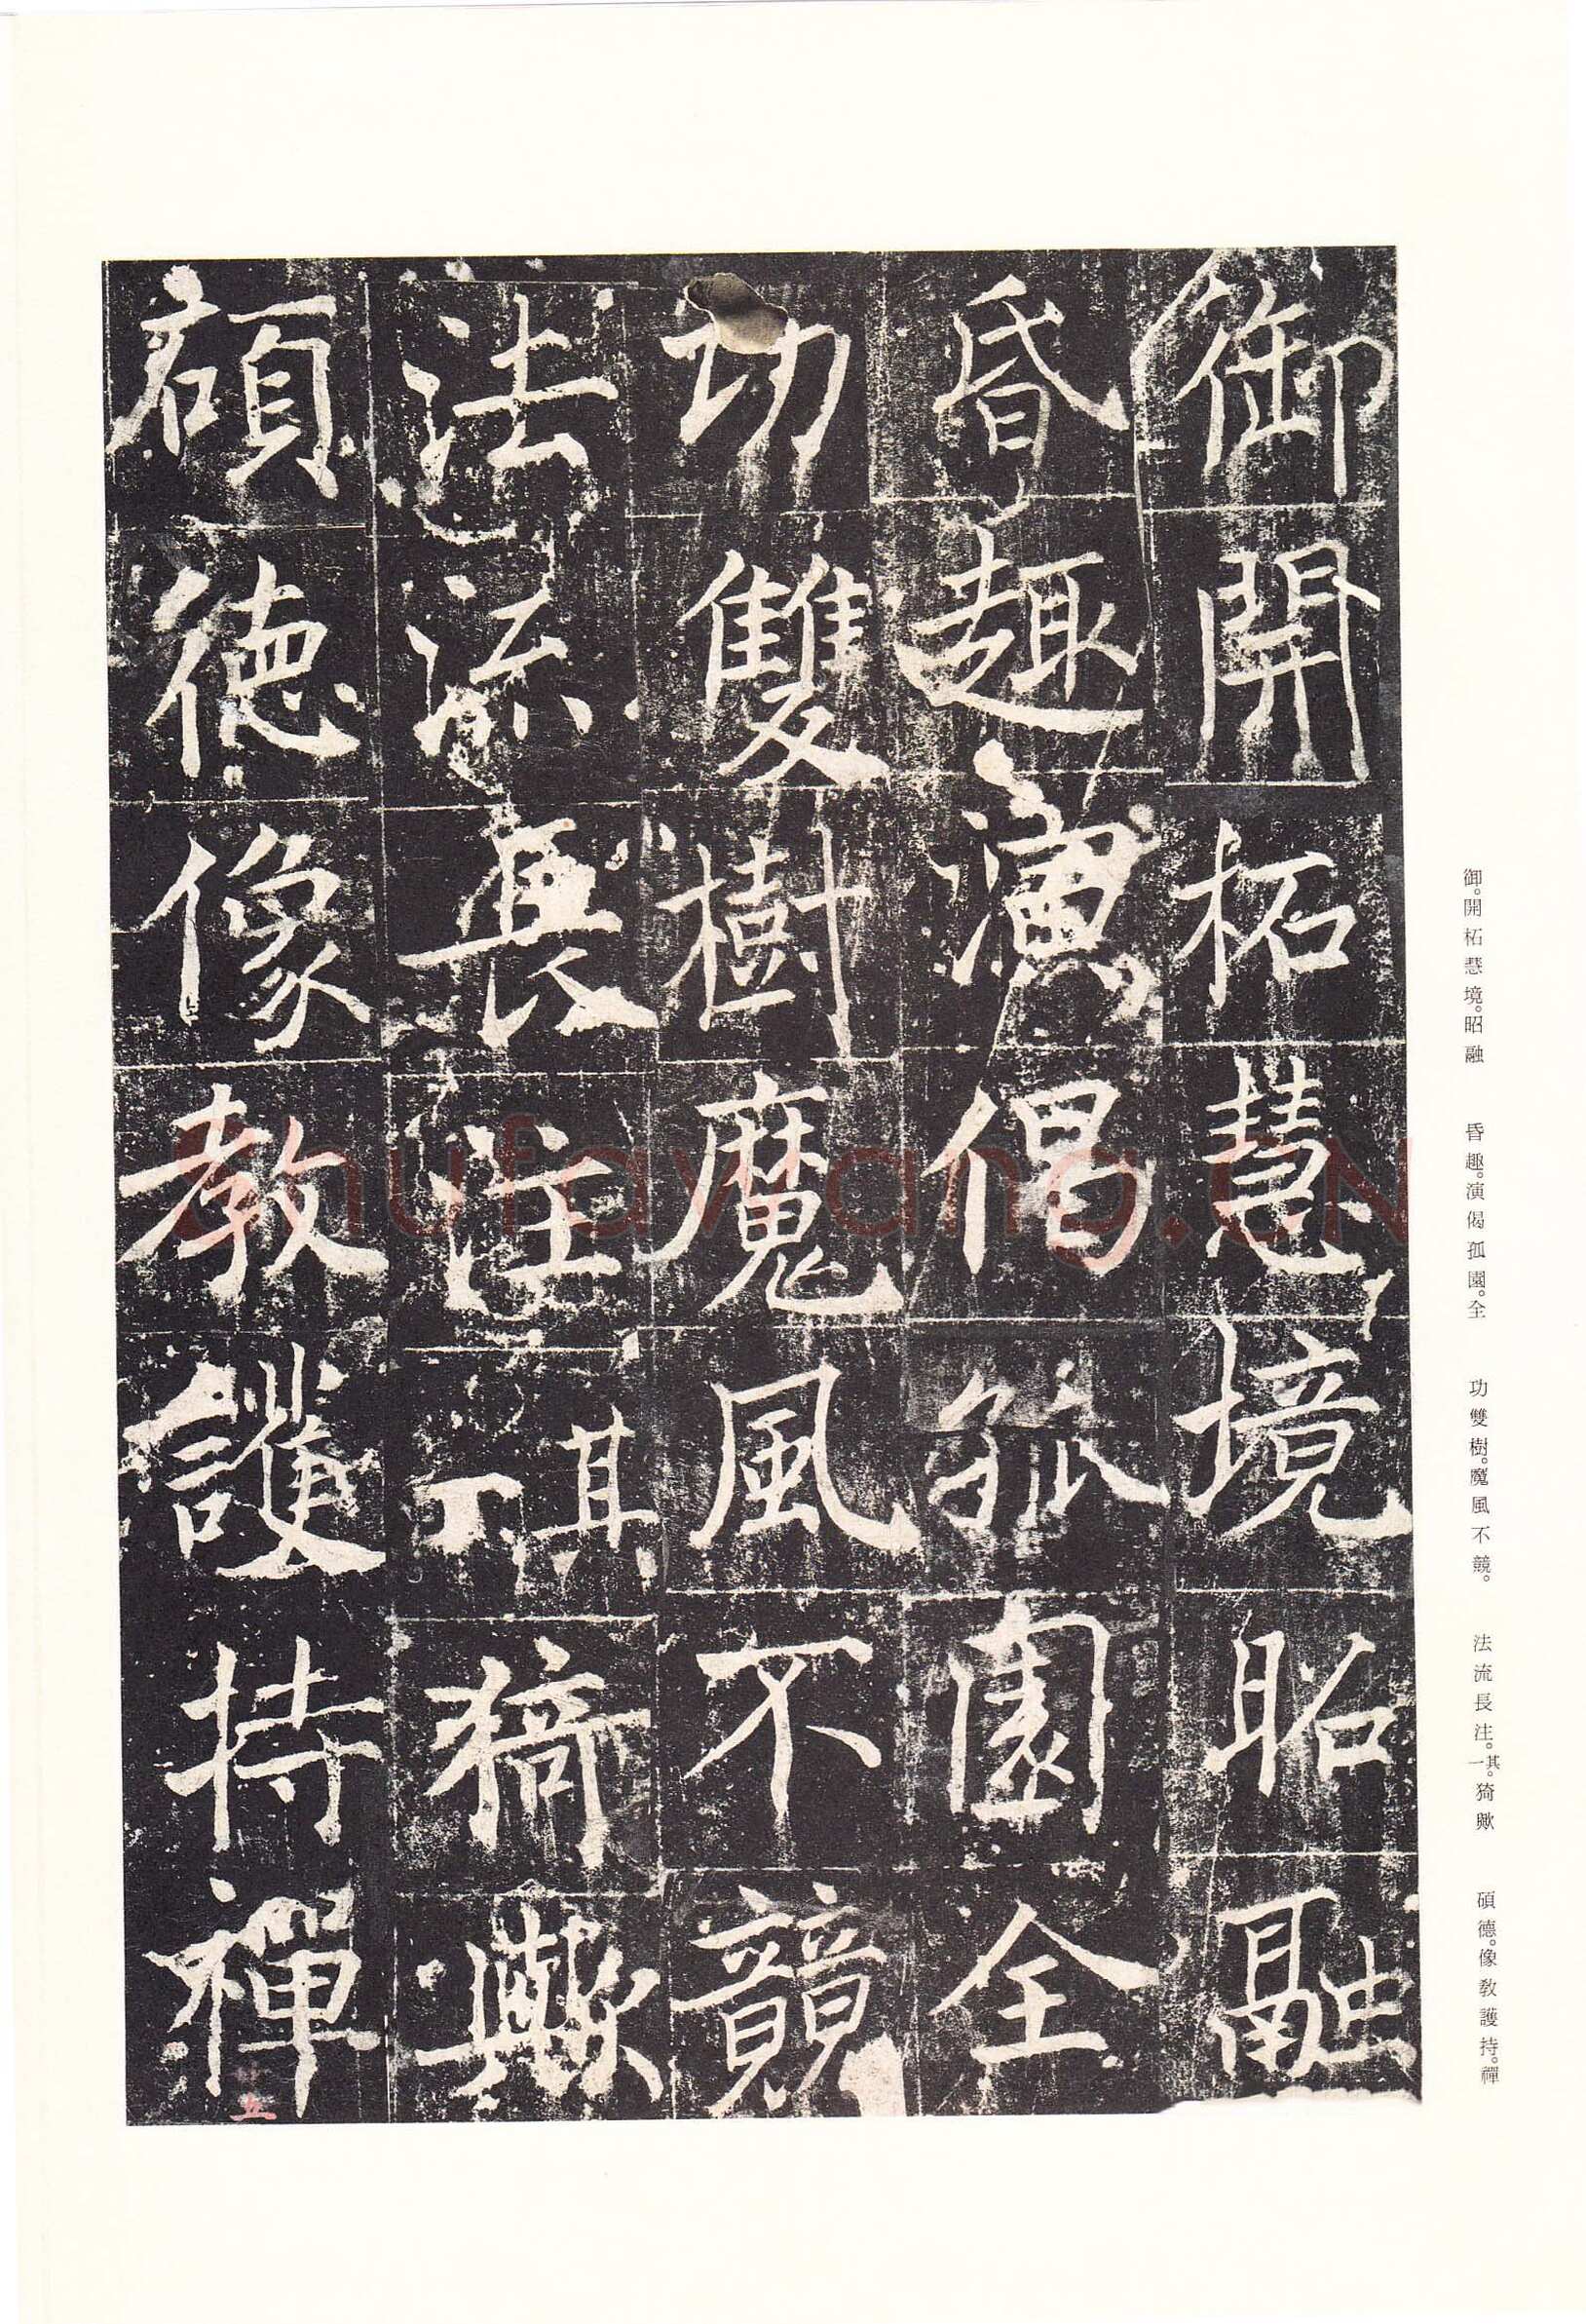 御開柘慧境昭融
昏趣演偈孤園全
功雙樹魔風不競
法流長注其一猗歟
碩德像教護持禪
五
御。開柘慧境。昭融
昏趣。演偈孤園。全
功雙樹。魔風不競。
法流長注。其一。猗歟
碩德。像教護持。禪
shufawang.CN